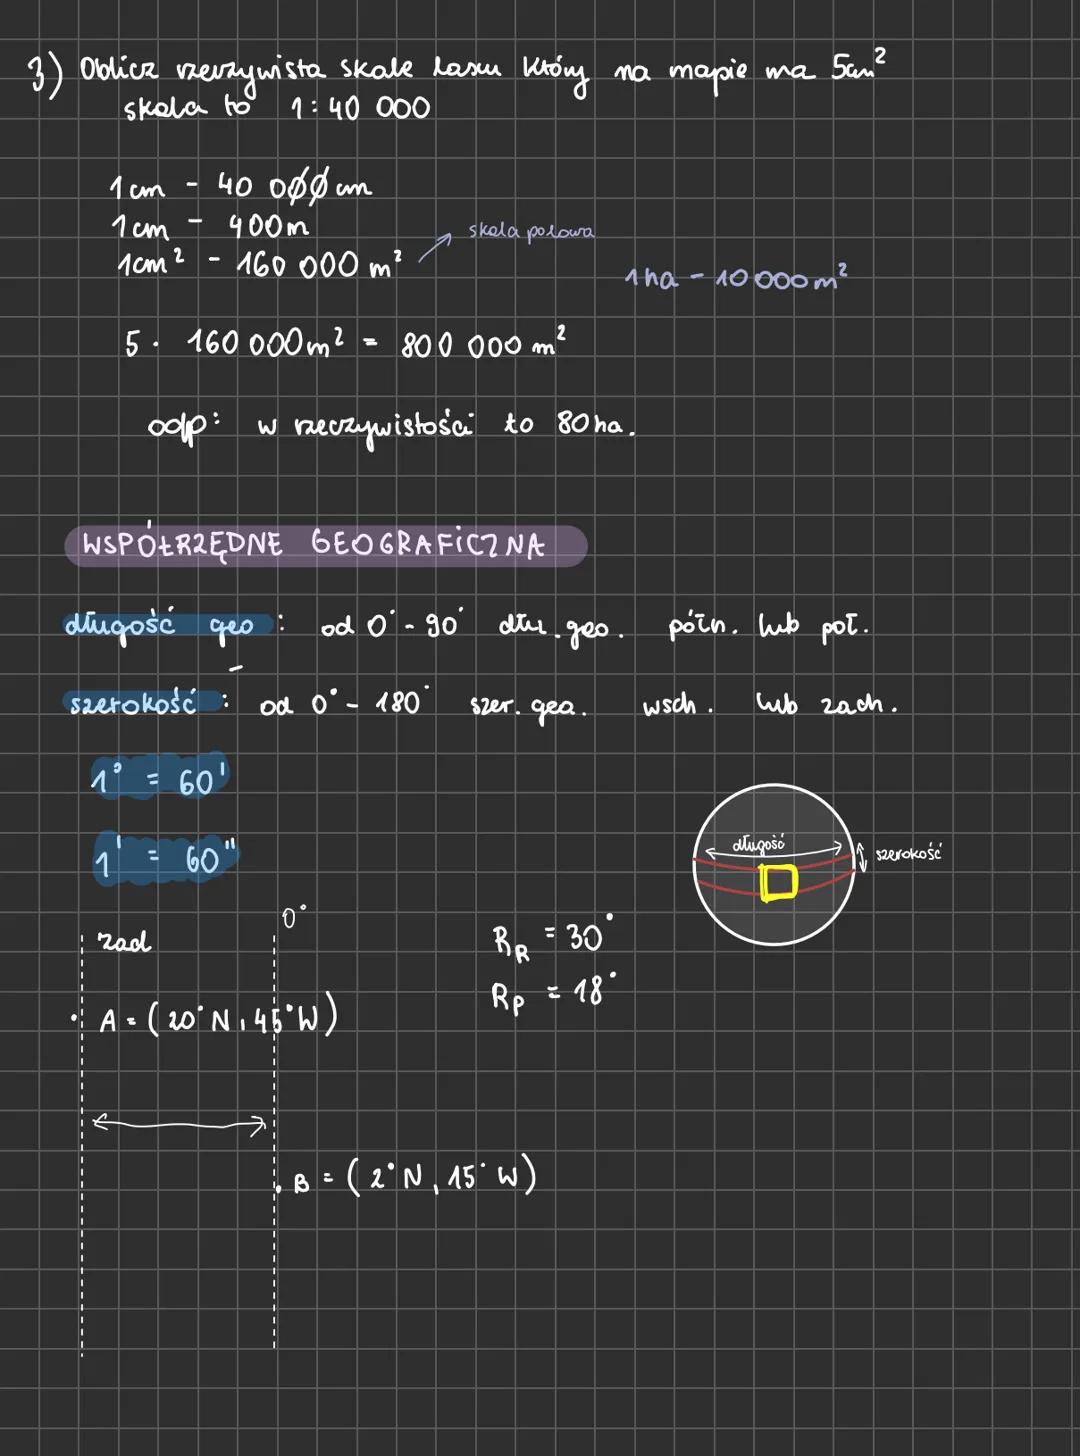 3) Oblicz rzeczywista skale lasu który na mapie ma 5cm²
skala to 1:40 000
1cm - 40 000 cm
1cm - 400m
1cm² - 160 000 m²
skala polowa
1ha - 10 000m²
5 · 160 000m² = 800 000 m²
odp: w rzeczywistości to 80ha.
WSPÓŁRZĘDNE GEOGRAFICZNA
długość geo : od 0° - 90° dłu. geo. półn. lub poł.
szerokość : od 0° - 180° szer. geo. wsch. lub zach.
1° = 60'
1' = 60"
długość
szerokość
0°
zad
R_R = 30°
R_P = 18°
A = (20°N, 45°W)
B = (2°N, 15°W)